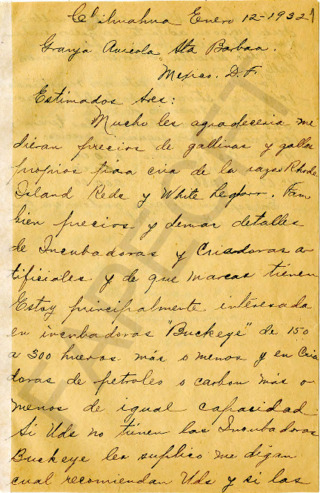 Chihuahua Enero 12-1932
Granja Avicola Sta Barbara.
Mexico. D.F.
Estimados Sres:
Mucho les agradeceria me
dieran precios de gallinas y gallos
propios para cria de la razas Rhode
Island Reds y White Leghorn. Tam
bien precios y demas detalles
de Incubadoras y Criadoras ar
tificiales y de que marcas tienen
Estoy principalmente interesada
en incubadoras "Buckeye" de 150
a 300 huevos más o menos y en Cria
doras de petroleo o carbon más o
menos de igual capasidad
Si Uds no tienen las Incubadoras
Buckeye les suplico me digan
cual recomiendan Uds y si las